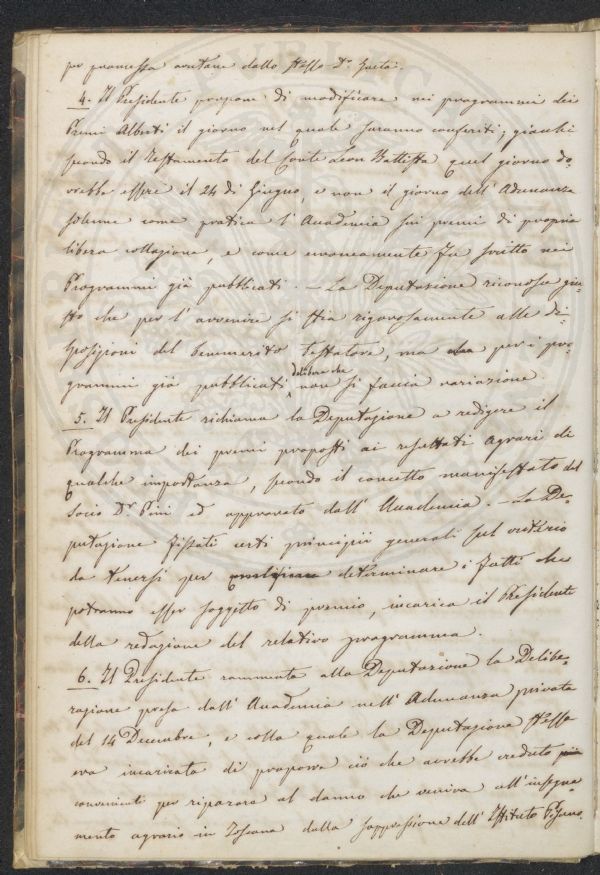 per promessa avutane dallo stesso Dr. Gueta.
4. Il Presidente propone di modificare nei programmi dei
Premi Alberti il giorno nel quale saranno conferiti; giacchè
secondo il Testamento del Conte Leon Battista quel giorno do-
vrebbe essere il 24 di Giugno, e non il giorno dell'Adunanza
solenne come pratica l'Accademia sui premi di propria
libera collazione, e come erroneamente fu scritto nei
Programmi già pubblicati. - La Deputazione riconosce giu-
sto che per l'avvenire si stia rigorosamente alle di-
sposizioni del benemerito testatore, ma per i pro-
grammi già pubblicati delibera che non si faccia variazione
5. Il Presidente richiama la Deputazione a redigere il
Programma dei premi proposti ai resultati agrari di
qualche importanza, secondo il concetto manifestato dal
socio Dr. Pini ed approvato dall'Accademia. - La De-
putazione fissati certi principii generali sul criterio
da tenersi per determinare i fatti che
potranno esser soggetto di premio, incarica il Presidente
della redazione del relativo programma.
6. Il Presidente rammenta alla Deputazione la Delibe-
razione presa dall'Accademia nell'Adunanza privata
del 14 Decembre, e colla quale la Deputazione stessa
era incaricata di proporre ciò che avrebbe creduto più
conveniente per riparare al danno che veniva all'insegna-
mento agrario in Toscana dalla soppressione dell'Istituto Pisano.